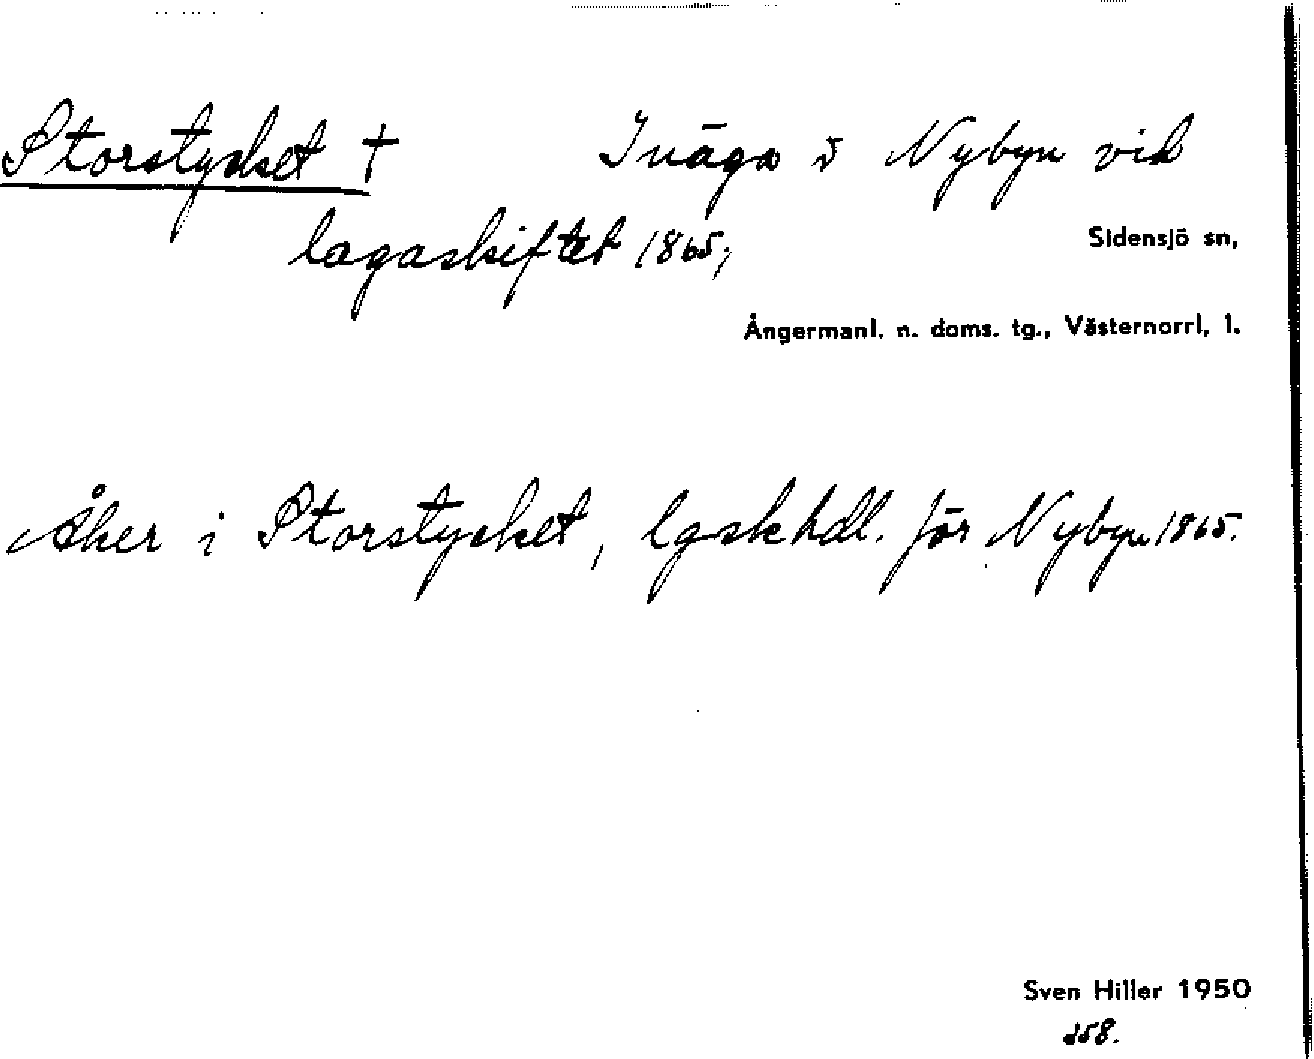 Storstycket † Inäga i Nybyn vid
lagaskiftet 1865,
Sidensjö sn,
Ångermanl. n. doms. tg., Västernorrl. l.
Åker i Storstycket, lgskhdl. för Nybyn 1865.
Sven Hiller 1950